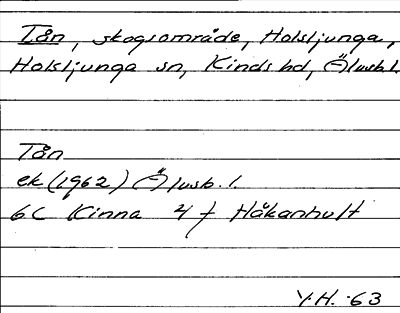 Tån, skogsområde, Holsljunga,
Holsljunga sn, Kinds hd, Älvsb.l.
Tån
ek (1962) Älvsb.l.
6C Kinna 4 f Håkanhult
Y.H. -63